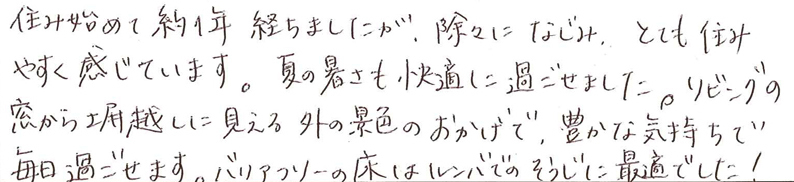 住み始めて約1年経ちましたが、除々になじみ、とても住み
やすく感じています。夏の暑さも快適に過ごせました。リビングの
窓から塀越しに見える外の景色のおかげで、豊かな気持ちで
毎日過ごせます。バリアフリーの床はルンバでのそうじに最適でした！